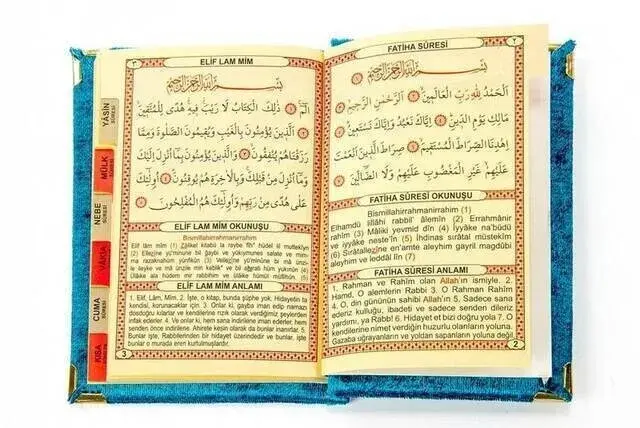 FATİHA SÛRESİ
٢
بِسْمِ اللّٰهِ الرَّحْمٰنِ الرَّحِيمِ
اَلْحَمْدُ لِلّٰهِ رَبِّ الْعَالَمِينَ اَلرَّحْمٰنِ الرَّحِيمِ
مَالِكِ يَوْمِ الدِّينِ اِيَّاكَ نَعْبُدُ وَاِيَّاكَ نَسْتَعِينُ
اِهْدِنَا الصِّرَاطَ الْمُسْتَقِيمَ صِرَاطَ الَّذِينَ اَنْعَمْتَ
عَلَيْهِمْ غَيْرِ الْمَغْضُوبِ عَلَيْهِمْ وَلَا الضَّالِّينَ
FATİHA SÛRESİ OKUNUŞU
Bismillahirrahmanirrahim (1)
Elhamdü lillâhi rabbil' âlemîn (2) Errahmânir
rahîm (3) Mâliki yevmid dîn (4) İyyâke na'büdü
ve iyyâke neste'în (5) İhdinas sırâtal müstekîm
(6) Sırâtallezîne en'amte aleyhim gayril magdûbi
aleyhim ve leddâl lîn (7)
FATİHA SÛRESİ ANLAMI
1. Rahman ve Rahîm olan Allah'ın ismiyle. 2.
Hamd, O alemlerin Rabbi 3. O Rahman Rahîm
4. O, din gününün sahibi Allah'ın 5. Sadece sana
ederiz kulluğu, ibadeti ve sadece senden dileriz
yardımı, ya Rabb! 6. Hidayet et bizi doğru yola 7. O
kendilerine nimet verdiğin huzurlu olanların yoluna.
Gazaba uğrayanların ve yoldan sapanların yoluna değil.
2
٣
ELİF LAM MİM
بِسْمِ اللّٰهِ الرَّحْمٰنِ الرَّحِيمِ
الٓمٓ ذٰلِكَ الْكِتَابُ لَا رَيْبَ فِيهِ هُدًى لِلْمُتَّقِينَ
اَلَّذِينَ يُؤْمِنُونَ بِالْغَيْبِ وَيُقِيمُونَ الصَّلٰوةَ وَمِمَّا
رَزَقْنَاهُمْ يُنْفِقُونَ وَالَّذِينَ يُؤْمِنُونَ بِمَا اُنْزِلَ اِلَيْكَ
وَمَا اُنْزِلَ مِنْ قَبْلِكَ وَبِالْاٰخِرَةِ هُمْ يُوقِنُونَ اُولٰئِكَ
عَلٰى هُدًى مِنْ رَبِّهِمْ وَاُولٰئِكَ هُمُ الْمُفْلِحُونَ
ELİF LAM MİM OKUNUŞU
Bismillahirrahmanirrahim
Elif lâm mîm (1) Zâlikel kitâbü la raybe fîh' hüdel lil muttekîyn
(2) Ellezîne yü'minune bil ğaybi ve yükıymunes salate ve mim-
ma razaknahüm yünfikûn (3) Vellezîne yü'minune bi mâ ünzi-
le ileyke ve mâ ünzile min kablik' ve bil aḫırati hüm yükınûn (4)
Ülâike ala hüdem mir rabbihim ve ülâike hümül müflihûn (5)
ELİF LAM MİM ANLAMI
1. Elif, Lâm, Mim. 2. İşte, o kitap, bunda şüphe yok, Hidayetin ta
kendisi, korunacaklar için. 3. Onlar ki, gayba iman edip namazı
dosdoğru kılarlar ve kendilerine rızık olarak verdiğimiz şeylerden
infak ederler. 4. Ve onlar ki, hem sana indirilene iman ederler; hem
senden önce indirilene. Ahirete kesin olarak da bunlar inanırlar. 5.
Bunlar işte, Rabblerinden bir hidayet üzerindedir ve bunlar, işte
bunlar o murada eren kurtulmuşlardır.
3
YÂSİN
SÛRESİ
MÜLK
SÛRESİ
NEBE
SÛRESİ
VAKIA
CUMA
SÛRESİ
KISA
SÛRELER